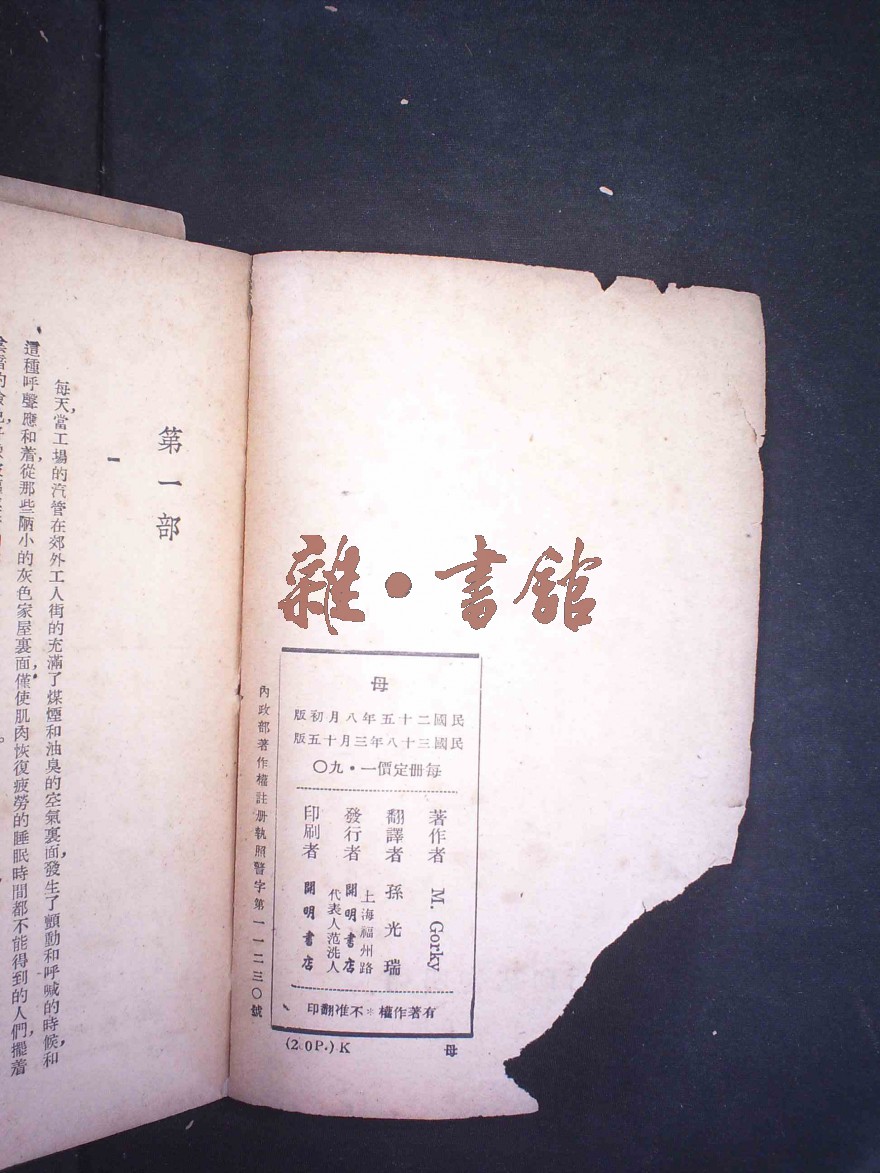 第一部
一
每天,當工場的汽管在郊外工人街的充滿了煤煙和油臭的空氣裏面,發生了顫動和呼喊的時候,和
這種呼聲應和着,從那些陋小的灰色家屋裏面,僅使肌肉恢復疲勞的睡眠時間都不能得到的人們,擺着
雜•書館
母
民國二十五年八月初版
民國三十八年三月十五版
每冊定價一•九〇
著作者 M. Gorky
翻譯者 孫光瑞
發行者 上海福州路 開明書店 代表人范洗人
印刷者 開明書店
有著作權*不准翻印
內政部著作權註册執照警字第一一二三〇號
(2.0P.) K
母